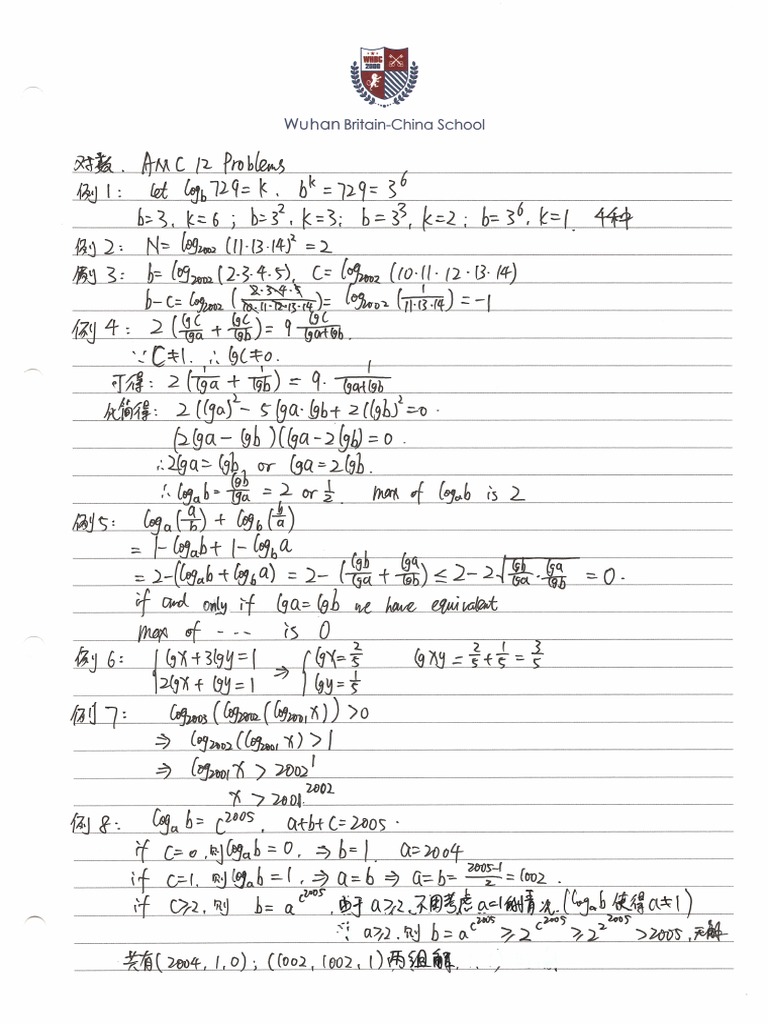 WHBC
2000
Wuhan Britain-China School
对数. AMC 12 Problems
例1: Let log_b 729 = k. b^k = 729 = 3^6
b=3, k=6 ; b=3^2, k=3; b=3^3, k=2; b=3^6, k=1. 4种
例2: N = log_2002 (11·13·14)^2 = 2
例3: b = log_2002 (2·3·4·5), C = log_2002 (10·11·12·13·14)
b-c = log_2002 (2·3·4·5/10·11·12·13·14) = log_2002 (1/11·13·14) = -1
例4: 2(lgc/lga + lgc/lgb) = 9 lgc/lga+lgb.
∵ C≠1. ∴ lgc≠0.
可得: 2(1/lga + 1/lgb) = 9. 1/lga+lgb
化简得: 2(lga)^2 - 5lga·lgb + 2(lgb)^2 = 0.
(2lga - lgb)(lga - 2lgb) = 0.
∴ 2lga = lgb, or lga = 2lgb.
∴ log_a b = lgb/lga = 2 or 1/2. max of log_a b is 2
例5: log_a (a/b) + log_b (b/a)
= 1 - log_a b + 1 - log_b a
= 2 - (log_a b + log_b a) = 2 - (lgb/lga + lga/lgb) ≤ 2 - 2√(lgb/lga · lga/lgb) = 0.
if and only if lga = lgb we have equivalent
max of ---- is 0
例6: { lgx + 3lgy = 1 2lgx + lgy = 1 ⇒ { lgx = 2/5 lgy = 1/5 lgxy = 2/5 + 1/5 = 3/5
例7: log_2003 (log_2002 (log_2001 x)) > 0
⇒ log_2002 (log_2001 x) > 1
⇒ log_2001 x > 2002^1
x > 2001^2002
例8: log_a b = c^2005, a+b+c = 2005.
if c=0, 则 log_a b = 0, ⇒ b=1. a=2004
if c=1, 则 log_a b = 1, ⇒ a=b ⇒ a=b= 2005-1/2 = 1002.
if c≥2, 则 b = a^c^2005, 由于 a≥2, 不用考虑 a=1的情况. (log_a b 使得a≠1)
∵ a≥2, 则 b = a^c^2005 ≥ 2^c^2005 ≥ 2^2^2005 > 2005, 无解
共有 (2004, 1, 0) ; (1002, 1002, 1) 两组解